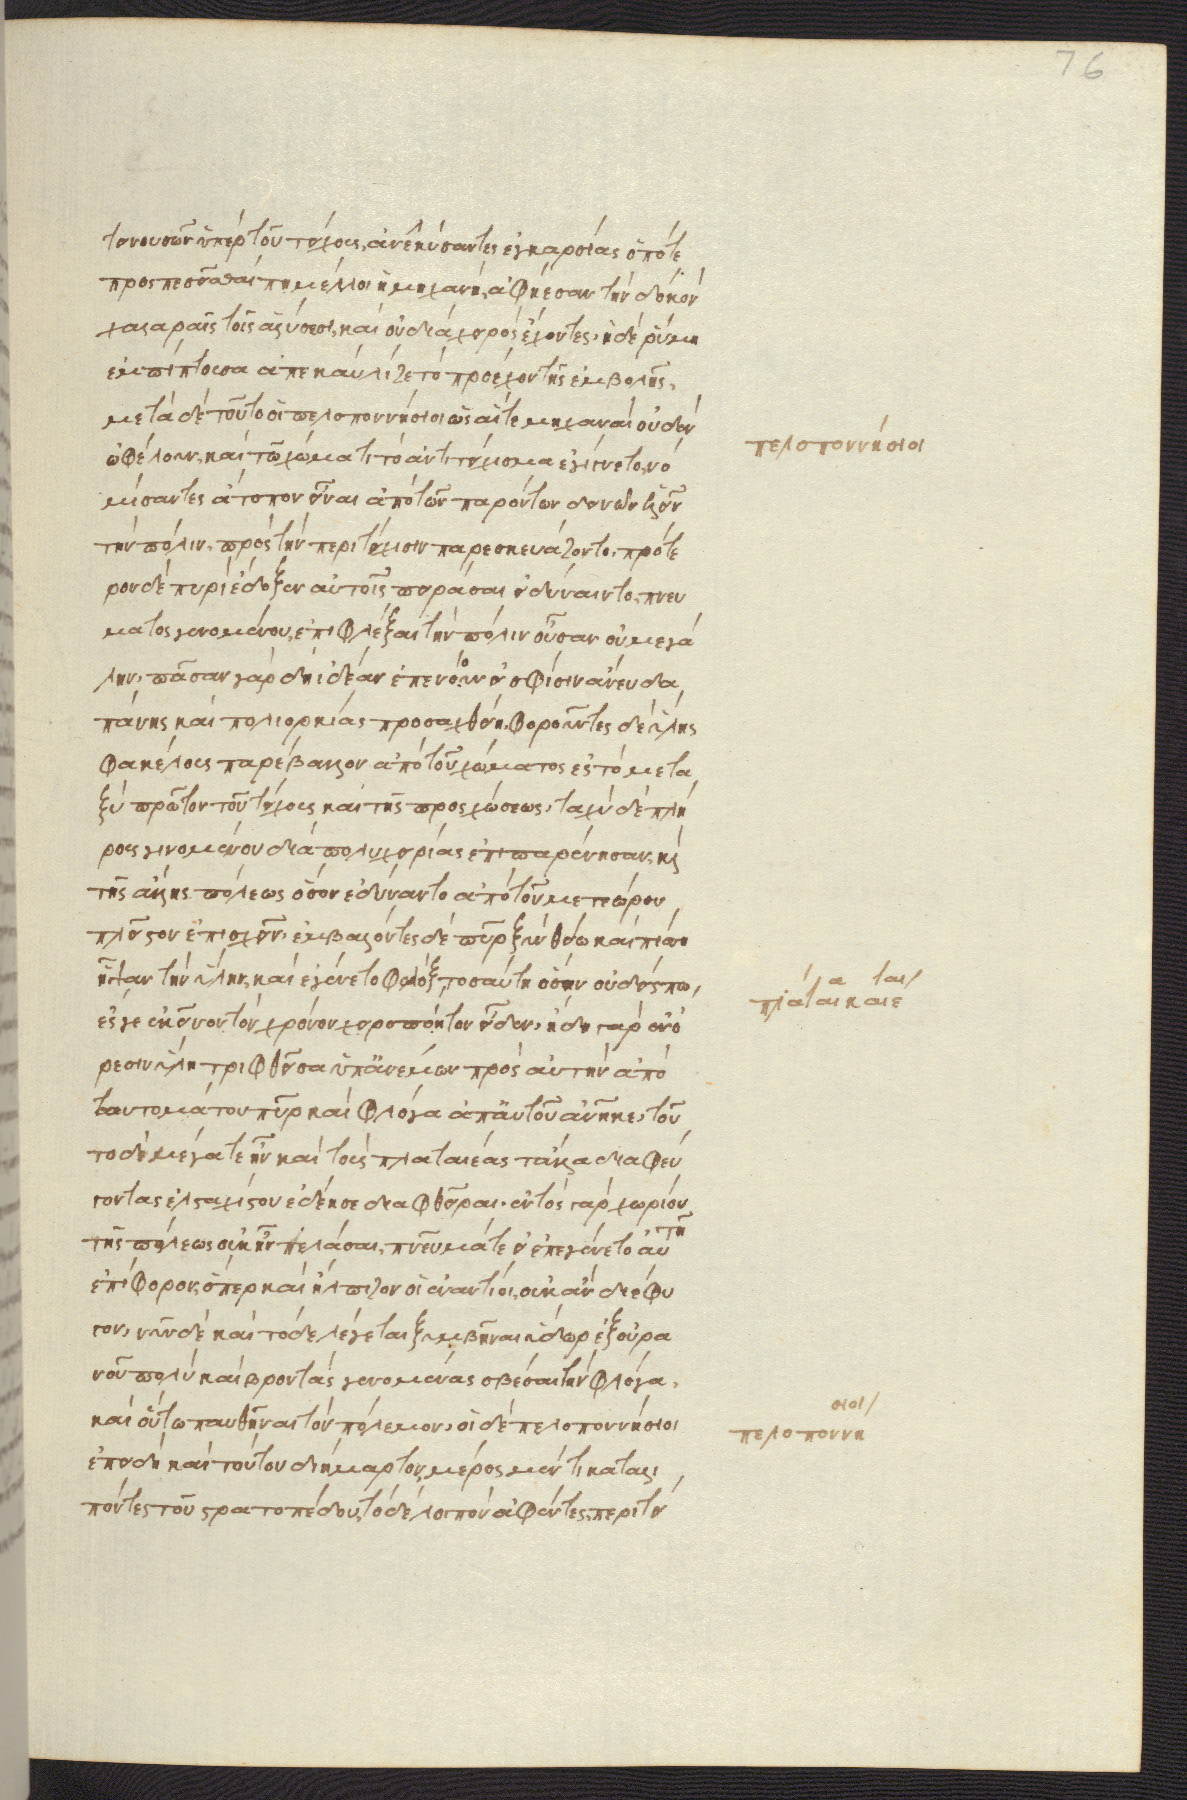 76
τεινουσῶν ὑπὲρ τοῦ τείχους, ἀνελκύσαντες ἐγκαρσίας ὁπότε
προσπεσεῖσθαί πῃ μέλλοι ἡ μηχανή, ἀφίεσαν τὴν δοκὸν
χαλαραῖς ταῖς ἁλύσεσι, καὶ οὐ διὰ χειρὸς ἔχοντες, ἡ δὲ ῥύμῃ
ἐμπίπτουσα ἀπεκαύλιζε τὸ προέχον τῆς ἐμβολῆς.
μετὰ δὲ τοῦτο οἱ πελοποννήσιοι ὡς αἵ τε μηχαναὶ οὐδὲν
πελοποννήσιοι
ὠφέλουν, καὶ τῶ χώματι τὸ ἀντιτείχισμα ἐγίγνετο, νο
μίσαντες ἄπορον εἶναι ἀπὸ τῶν παρόντων δεινῶν ἑλεῖν
τὴν πόλιν, πρὸς τὴν περιτείχισιν παρεσκευάζοντο, πρότε
ρον δὲ πυρὶ ἔδοξεν αὐτοῖς πειράσαι εἰ δύναιντο, πνευ
ματος γενομένου, ἐπιφλέξαι τὴν πόλιν οὖσαν οὐ μεγά
λην, πᾶσαν γὰρ δὴ ἰδέαν ἐπενόουν εἴ σφίσιν ἄνευ δα
πάνης καὶ πολιορκίας προσαχθείη, φοροῦντες δὲ ὕλης
φακέλους παρέβαλλον ἀπὸ τοῦ χώματος ἐς τὸ μετα
ξὺ πρῶτον τοῦ τείχους καὶ τῆς προσχώσεως, ταχὺ δὲ πλή
ρους γινομένου διὰ πολυχειρίας ἐπιπαρένησαν, κὶ
τῆς ἄλλης πόλεως ὅσον ἐδύναντο ἀπὸ τοῦ μετεώρου
πλεῖστον ἐπισχεῖν, ἐμβαλόντες δὲ πῦρ ξὺν θείω καὶ πίσση
ἧψαν τὴν ὕλην, καὶ ἐγένετο φλόξ τοσαύτη ὅσην οὐδείς πω,
πλαταικαιε α ται/
ἔς γε ἐκεῖνον τὸν χρόνον χειροποίητον εἶδεν, ἤδη γὰρ ἐν ὄ
ρεσιν ὕλη τριφθεῖσα ὑπ' ἀνέμων πρὸς αὑτὴν ἀπὸ
ταυτομάτου πῦρ καὶ φλόγα ἀπ' αὐτοῦ ἀνῆκε, τοῦ
το δὲ μέγα τε ἦν καὶ τοὺς πλαταιέας τἄλλα διαφεύ
γοντας ἐλαχίστου ἐδέησε διαφθεῖραι, ἐντὸς γὰρ χωρίον
τῆς πόλεως οὐκ ἦν πελάσαι, πνεῦμά τε εἰ ἐπεγένετο αὐτῆ
ἐπίφορον, ὅπερ καὶ ἤλπιζον οἱ ἐναντίοι, οὐκ ἂν διέφυ
γον, νῦν δὲ καὶ τόδε λέγεται ξυμβῆναι ὕδωρ ἐξ οὐρα
νοῦ πολὺ καὶ βροντὰς γενομένας σβέσαι τὴν φλόγα,
καὶ οὕτω παυθῆναι τὸν πόλεμον, οἱ δὲ πελοποννήσιοι
πελοποννη σιοι/
ἐπειδὴ καὶ τούτου διήμαρτον, μέρος μέν τι καταλι
πόντες τοῦ στρατοπέδου, τὸ δὲ λοιπὸν ἀφέντες, περιτεί